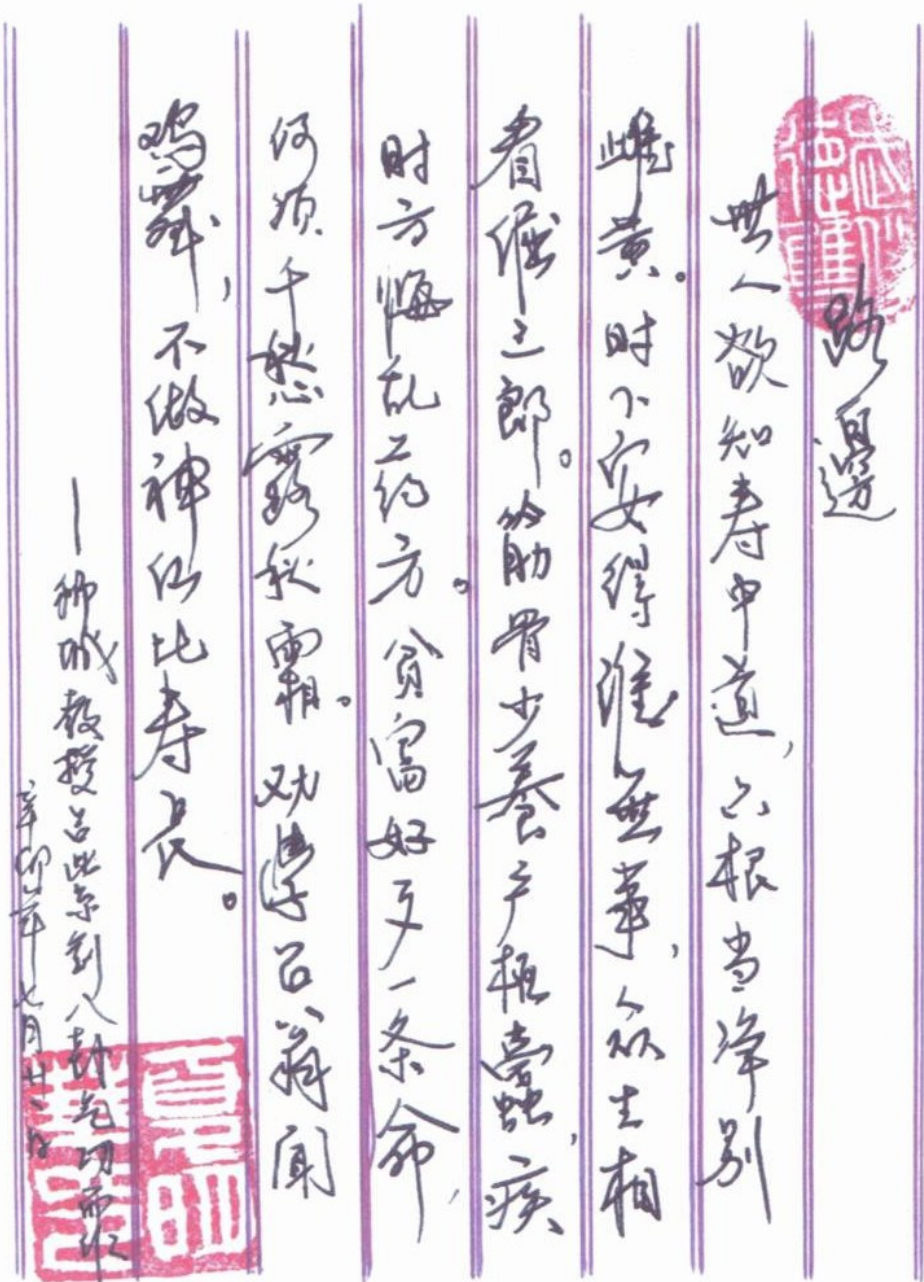 路邊
世人欲知寿中道，六根当净别
雌黄。时下安得谁無事，众生相
看催三郎。筋骨少養户枢蠹，疾
时方悔乱药方。贫富好歹一条命，
何须千愁露秋霜。劝學吕翁闻
鸡舞，不做神仙比寿长。
教授吕 八卦气功而
辛卯年七月廿